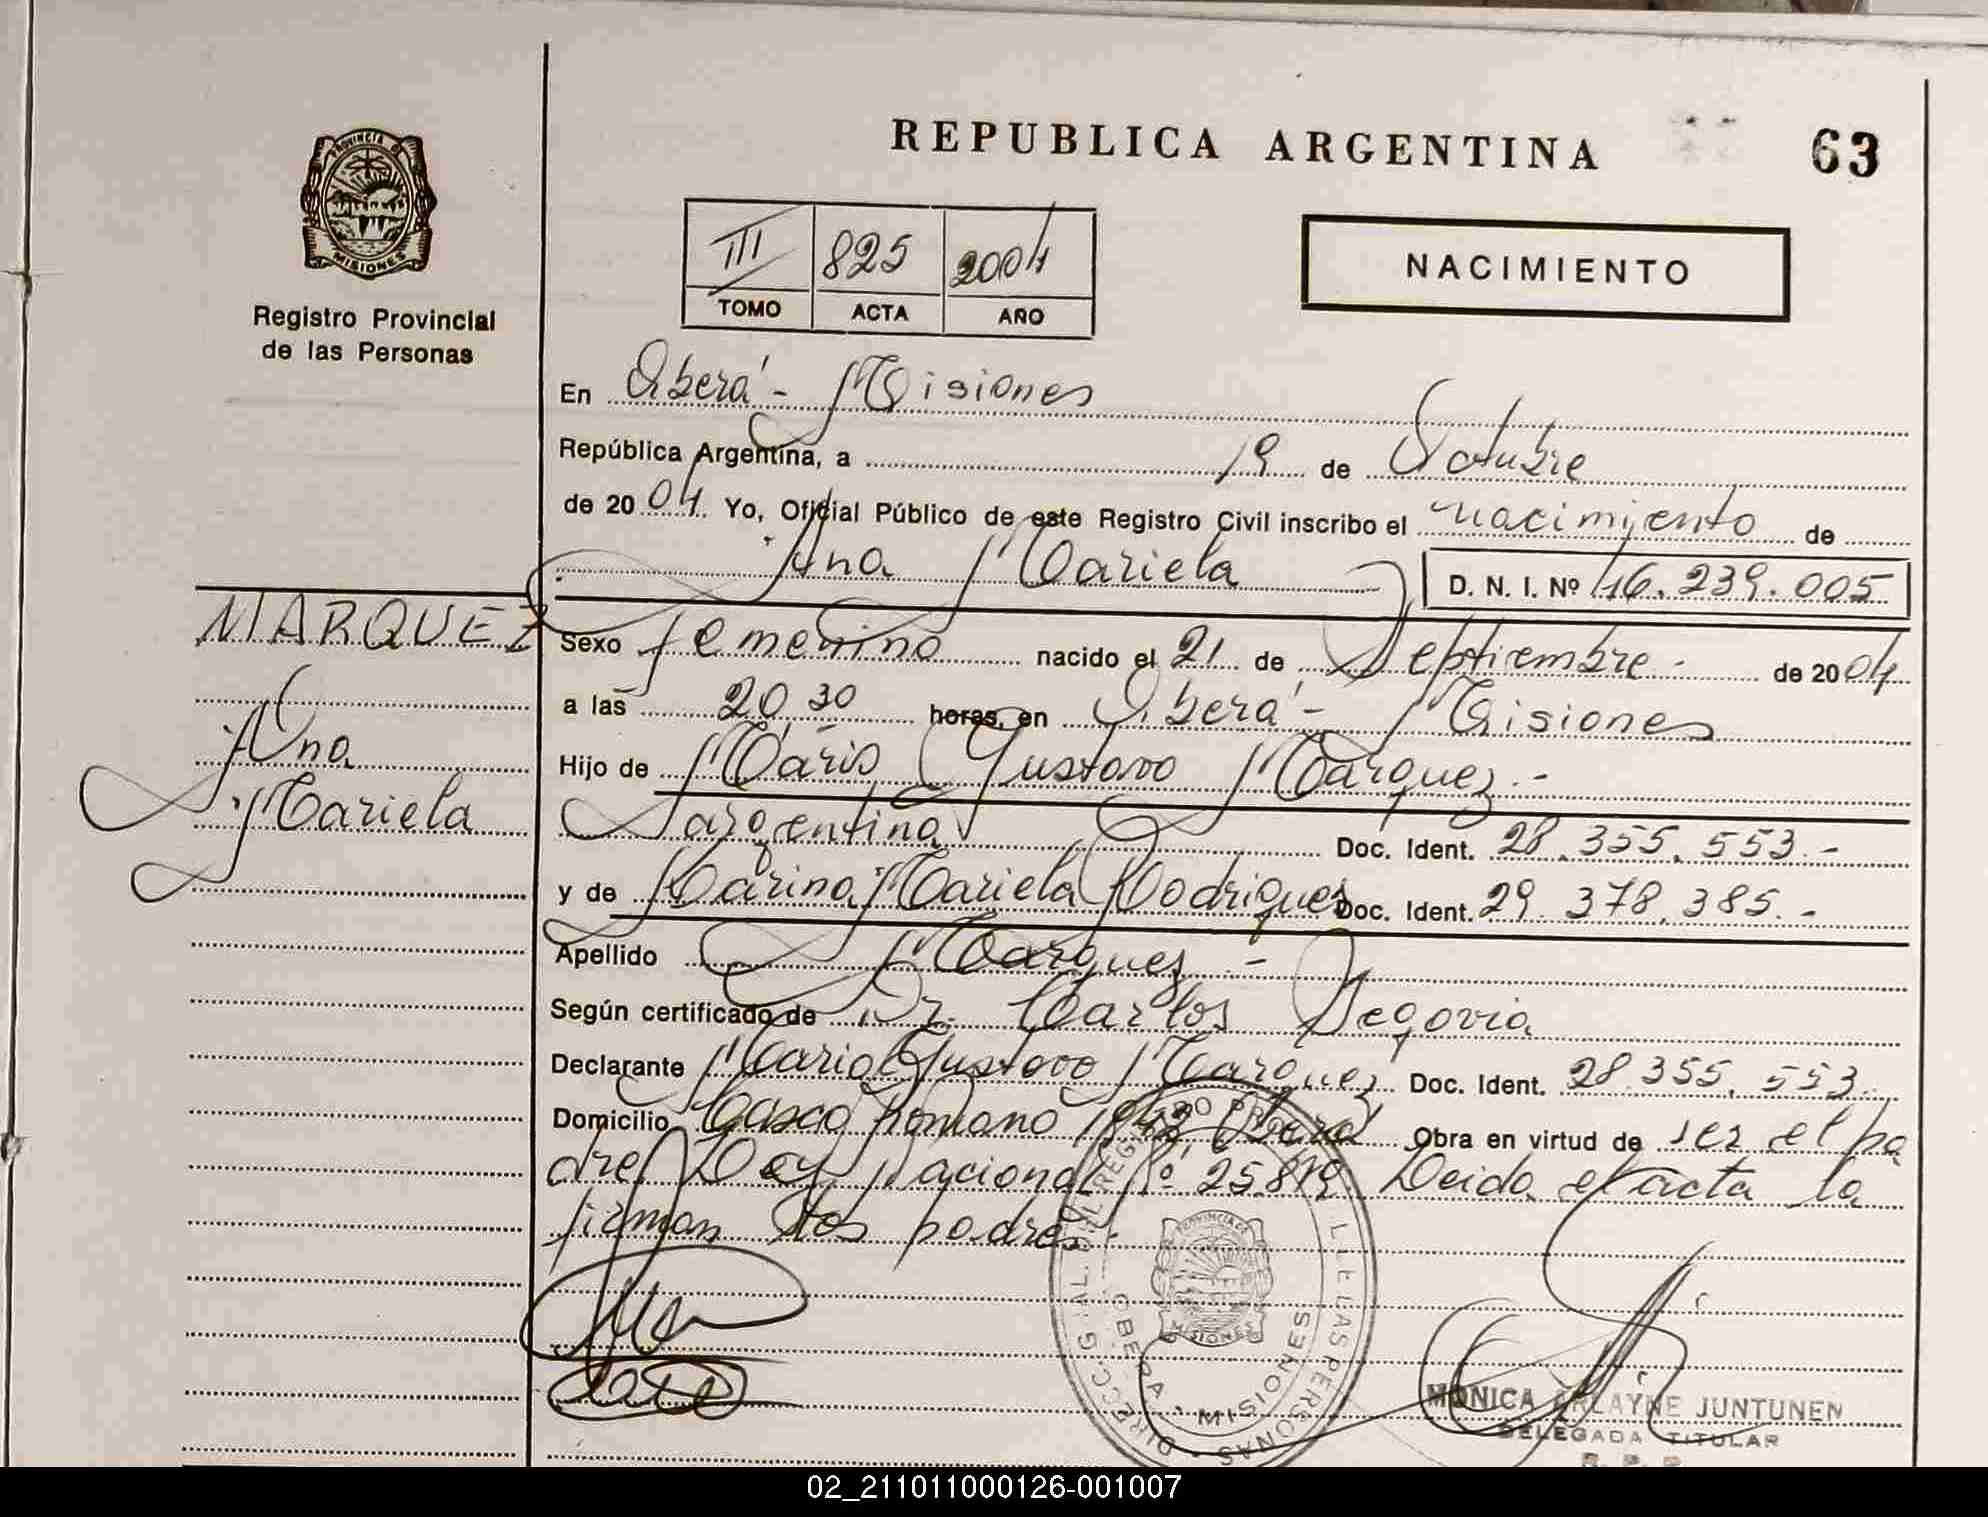 REPUBLICA ARGENTINA
63
PROVINCIA DE
MISIONES
Registro Provincial
de las Personas
III 825 2004
TOMO ACTA AÑO
NACIMIENTO
En Oberá - Misiones
República Argentina, a 19 de Octubre
de 2004. Yo, Oficial Público de este Registro Civil inscribo el nacimiento de
Ana Mariela
D. N. I. Nº 46.239.005
MARQUEZ
Ana
Mariela
Sexo femenino nacido el 21 de Septiembre.- de 2004
a las 20 30 horas, en Oberá - Misiones
Hijo de Mario Gustavo Marquez.-
argentina Doc. Ident. 28.355.553.-
y de Karina Mariela Rodrigues Doc. Ident. 29.378.385.-
Apellido Marquez -
Según certificado de Dr. Carlos Segovia
Declarante Mario Gustavo Marquez Doc. Ident. 28.355.553.
Domicilio Romano 1843 Oberá Obra en virtud de ser el pa
dre Ley Nacional Nº 25.819 Leida el acta la
firman los padres.-
DIRECC. GRAL. DEL REGISTRO PROVINCIAL DE LAS PERSONAS
PROVINCIA DE
MISIONES
OBERA - MISIONES
MONICA ARLAYNE JUNTUNEN
DELEGADA TITULAR
R. P. P.
02_211011000126-001007